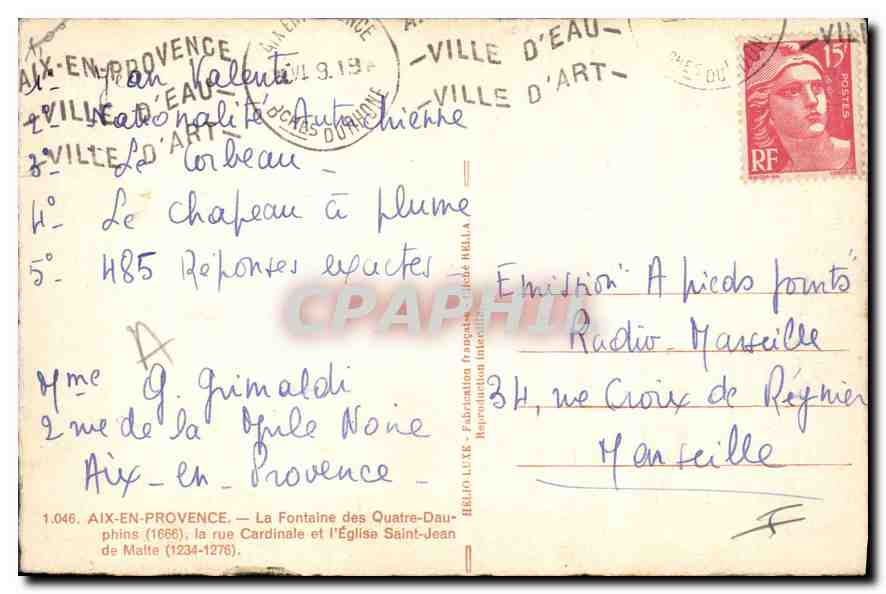 AIX-EN-PROVENCE
-VILLE D'EAU-
-VILLE D'ART-
AIX EN PROVENCE
BCHES DU RHONE
-VILLE D'EAU-
-VILLE D'ART-
-VILLE
15F
POSTES
RF
1°- Jean Valenti
2°- Nationalité Autrichienne
3°- Le Corbeau -
4°- Le chapeau à plume
5°- 485 Réponses exactes -
A
Mme G. Grimaldi
2 rue de la Mule Noire
Aix-en-Provence -
1.046. AIX-EN-PROVENCE. — La Fontaine des Quatre-Dau-
phins (1666), la rue Cardinale et l'Église Saint-Jean
de Malte (1234-1276).
HELIO LUXE - Fabrication française - Cliché RELLA
Reproduction interdite
CPAPHIL
Emission "A pieds joints"
Radio-Marseille
34, rue Croix de Régnier
Marseille